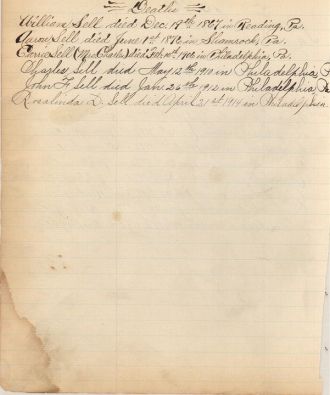 Deaths
William Sell died Dec. 19th 1867 in Reading, Pa.
Sell died June 1st 1876 in Shamrock, Pa.
Carrie Sell (Mrs Charles) died Feb. 1906 in Philadelphia, Pa.
Charles Sell died May 12th 1910 in Philadelphia, P
John F. Sell died Jan. 26th 1912 in Philadelphia, Pa
Rosalinda D. Sell died April 21st 1914 in Philada, Penn